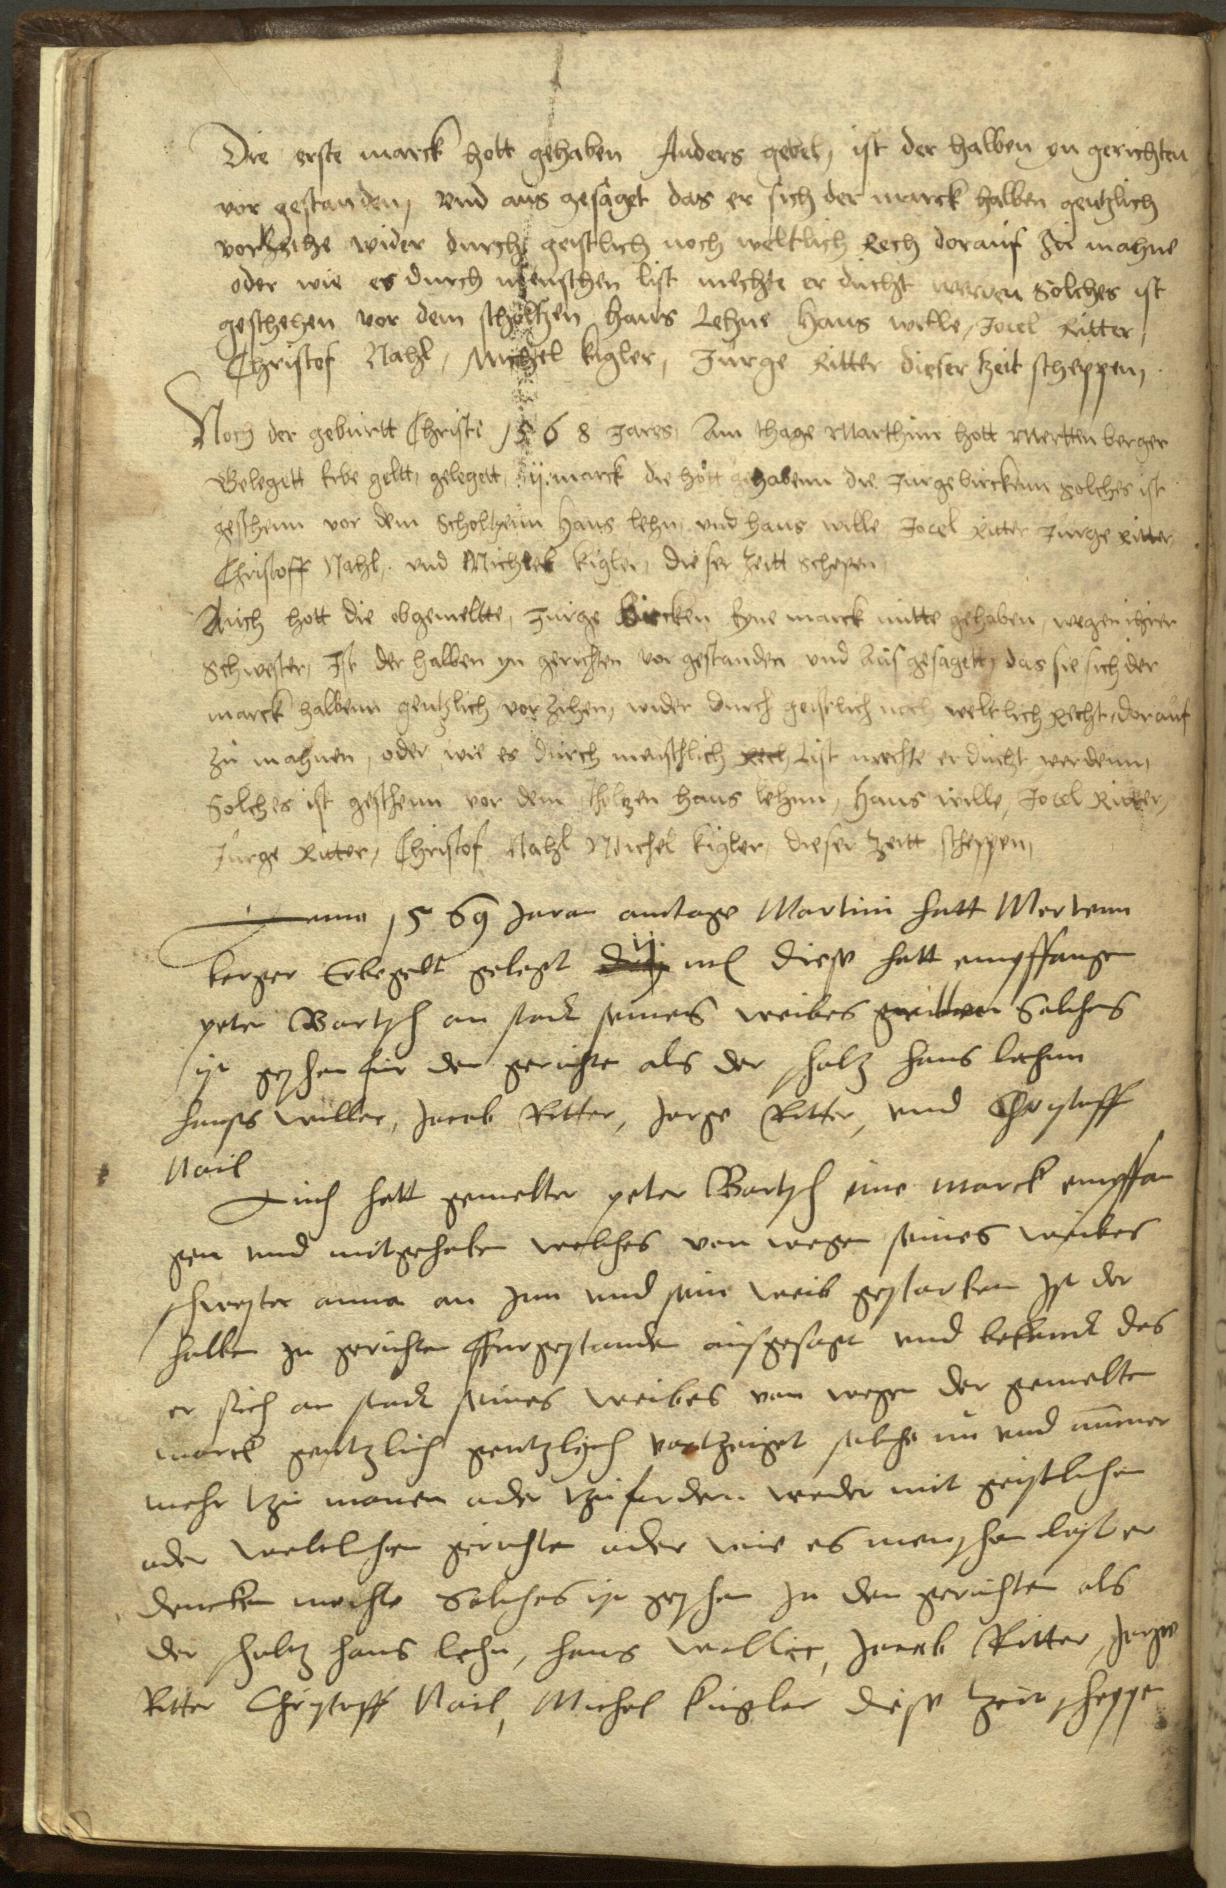 Die erste marck hott gehaben Anders gebel, ist der halben yn gerichten
vor gestanden, vnd aus gesaget das er sich der marck halben gentzlich
vorzihe wider durch geistlich noch weltlich Rech dorauf zu mahne
oder wie es durch menschen list mechte er ducht werden Solches ist
geschehen vor dem scholtzen Hans Lehne Hans wille, Jocel Ritter,
Christof Nahl, Michel kigler, Jurge Ritter dieser tzeit scheppen,
Noch der geburtt Christi 1568 Jares, Am thage Marthini hott Mertten berger
Gelegett Erbe geltt, gelegett, ij marck die hott gehabenn die Jurge birckenn solches ist
geschenn vor dem Scholtzenn Hans lehn, vnd hans wille Jocel Ritter Jurge Ritter,
Christoff Nahl, vnd Michhel kigler, dieser zeitt Schepen,
Auch hott die obgemeltte, Jurge bircken Eyne marck mitte gehaben, wegen ihrer
Schwester, Ist der halben yn gerichten vor gestanden vnd Aus gesagett, das sie sich der
marck halbenn gentzlich vor zihen, wider durch geistlich noch weltlich Recht, dorauf
zu mahnen, oder wie es durch menschlich Rech List mechte er ducht werdenn,
Solches ist geschenn vor dem scholtzen Hans lehnn, Hans wille, Jocel Ritter,
Jurge Ritter, Christof Nahl Michel kigler, dieser zeitt scheppen,
Anno 1569 Jaren amtage Martini hatt Mertenn
berger Erbegelt gelegt ij mk diese hatt empffangen
peter Bartsch an stadt seines weibes Solches
ist geschen fur den gerichte als der scholtz hans lehnn
hanss willer, Jacob Ritter, Jorge Ritter, vnd Christoff
Nail
Auch hatt gemelter peter Bartsch eine marck empffan
gen vnd mitgehaben welches von wegen seines weibes
schwester anna an Inn vnd sein weib gestorben Ist der
halben In gerichte ffurgestanden ausgesagt vnd bekandt das
er sich an stadt seines weibes von wegen der gemelten
marck gentzlich gentzlych vortzeiget solche nu vnd nimmer
mehr tzu manen oder tzu fordern weder mit geistlichen
oder weltlichen gerichten oder wie es menschen list er
dencken mochte Solches ist geschen In den gerichten als
der scholtz hans lehn, hans willer, Jacob Ritter, Jorge
Ritter Christoff Nail, Michel kugler diese tzeit scheppen